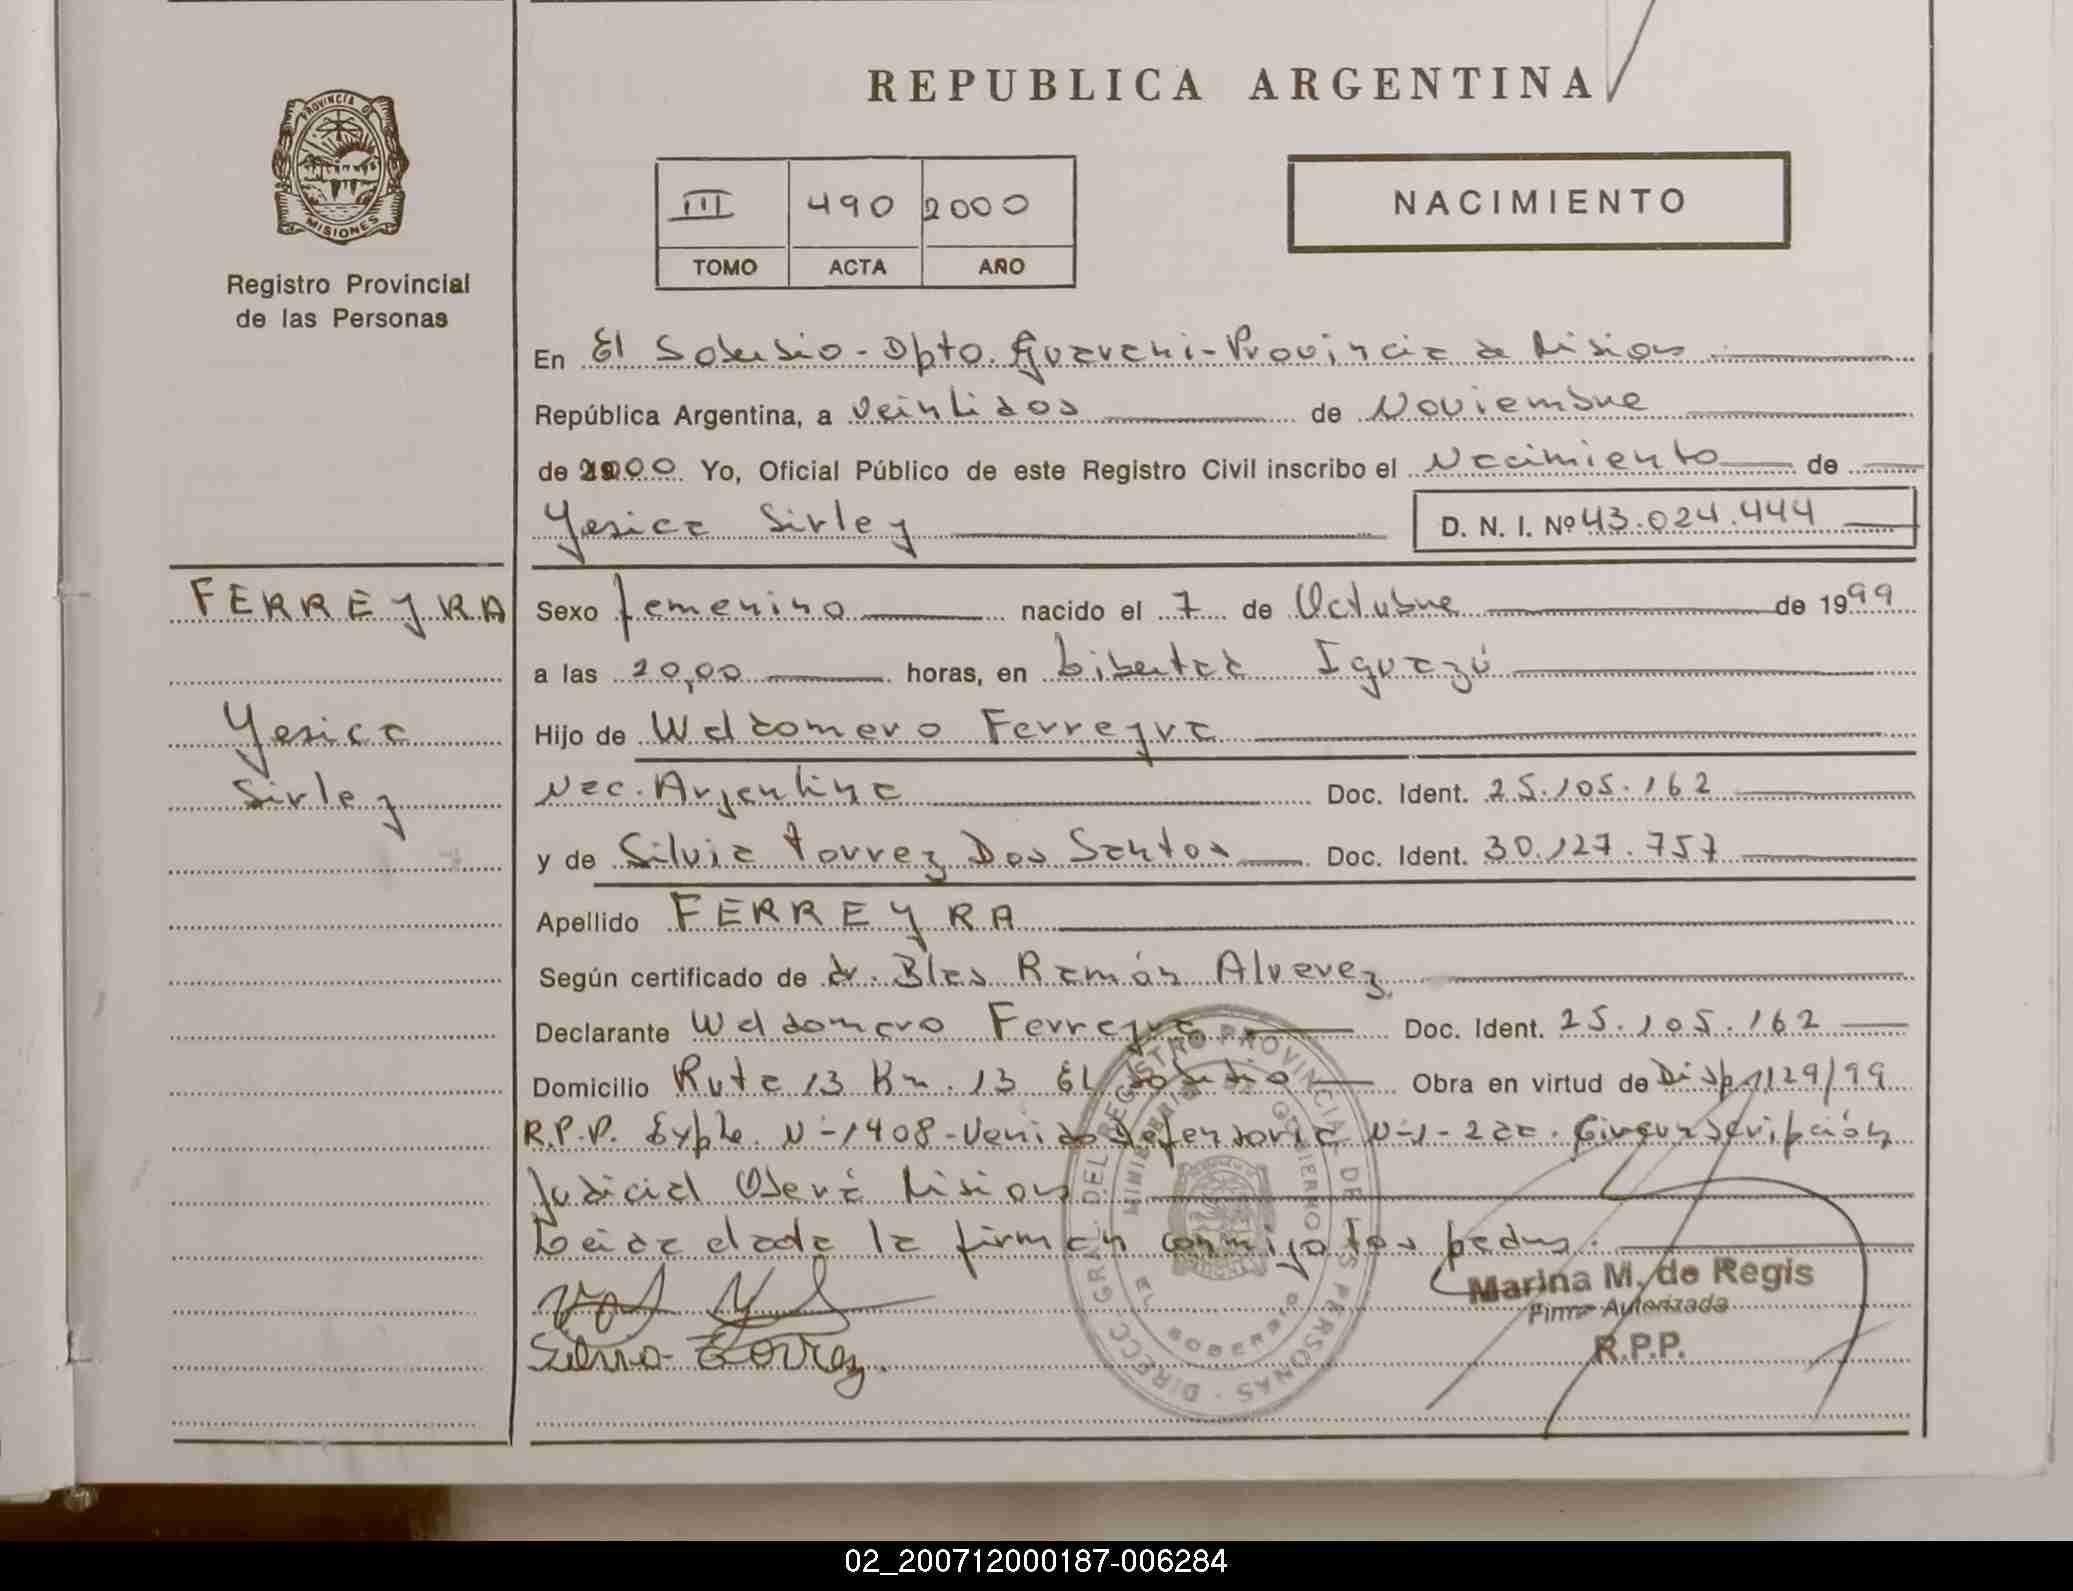 REPUBLICA ARGENTINA
PROVINCIA D
MISIONES
Registro Provincial
de las Personas
III 490 2000
TOMO ACTA AÑO
NACIMIENTO
En El Soberbio - Dpto. Guarani - Provincia de Misiones
República Argentina, a Veintidos de Noviembre
de 2000 Yo, Oficial Público de este Registro Civil inscribo el Nacimiento de
Yesica Sirley D. N. I. Nº 43.024.444
FERREYRA
Yesica
Sirley
Sexo femenino nacido el 7 de Octubre de 1999
a las 20,00 horas, en Libertad Iguazú
Hijo de Waldomero Ferreyra
Nac. Argentina Doc. Ident. 25.105.162
y de Silvia Torrez Dos Santos Doc. Ident. 30.127.757
Apellido FERREYRA
Según certificado de dr. Blas Ramón Alverez
Declarante Waldomero Ferreyra Doc. Ident. 25.105.162
Domicilio Ruta 13 Km. 13 El Soberbio Obra en virtud de Disp. 1129/99
R.P.P. Expte. N-1408-Venido defensoria N-1-2da. Circunscripción
Judicial Oberá Misiones
Leida el acta la firman conmigo los padres.
Silvia Torrez.
Marina M. de Regis
Firma Autorizada
R.P.P.
DIRECC. GRAL. DEL REGISTRO PROVINCIAL DE LAS PERSONAS
GOBIERNO
EL SOBERBIO
02_200712000187-006284